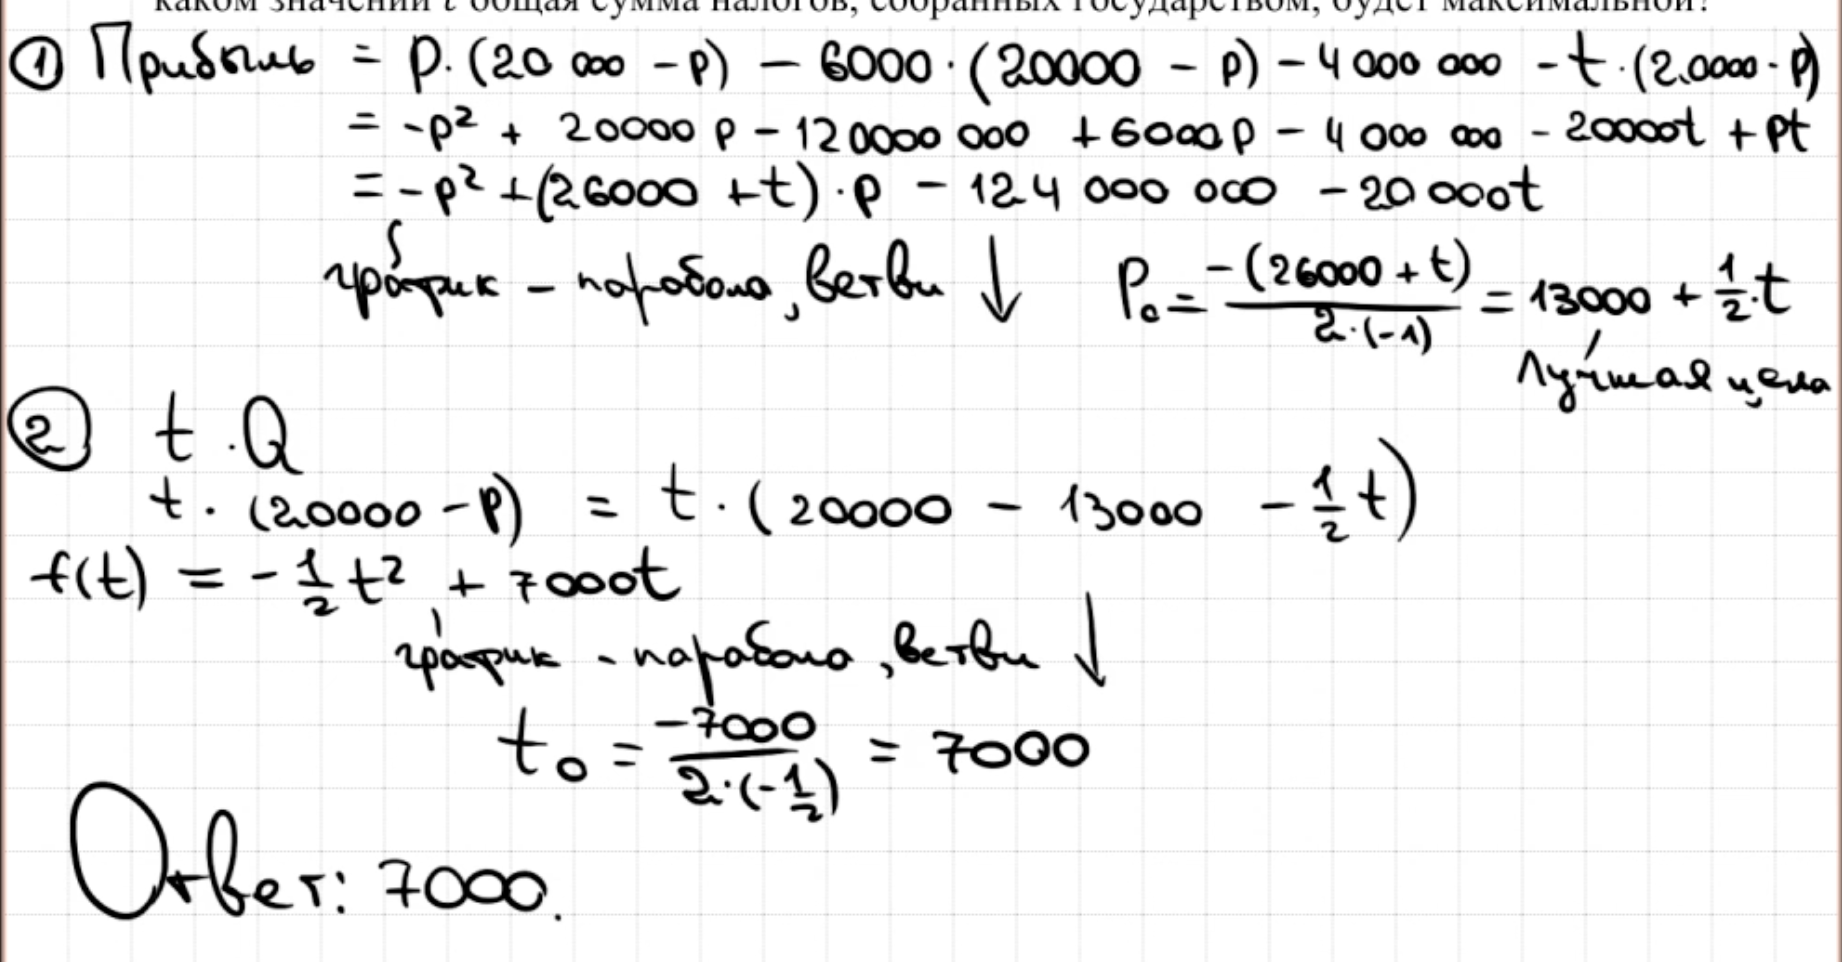 каком значении t общая сумма налогов, собранных государством, будет максимальной?
① Прибыль = p·(20 000 - p) - 6000·(20000 - p) - 4 000 000 - t·(20000 - p)
= -p² + 20000 p - 120000 000 + 6000p - 4 000 000 - 20000t + pt
= -p² + (26000 + t)·p - 124 000 000 - 20 000t
график - парабола, ветви ↓ P₀ = -(26000 + t) / 2·(-1) = 13000 + 1/2·t
лучшая цена
② t·Q
t·(20000 - p) = t·(20000 - 13000 - 1/2 t)
f(t) = -1/2 t² + 7000t
график - парабола, ветви ↓
t₀ = -7000 / 2·(-1/2) = 7000
Ответ: 7000.